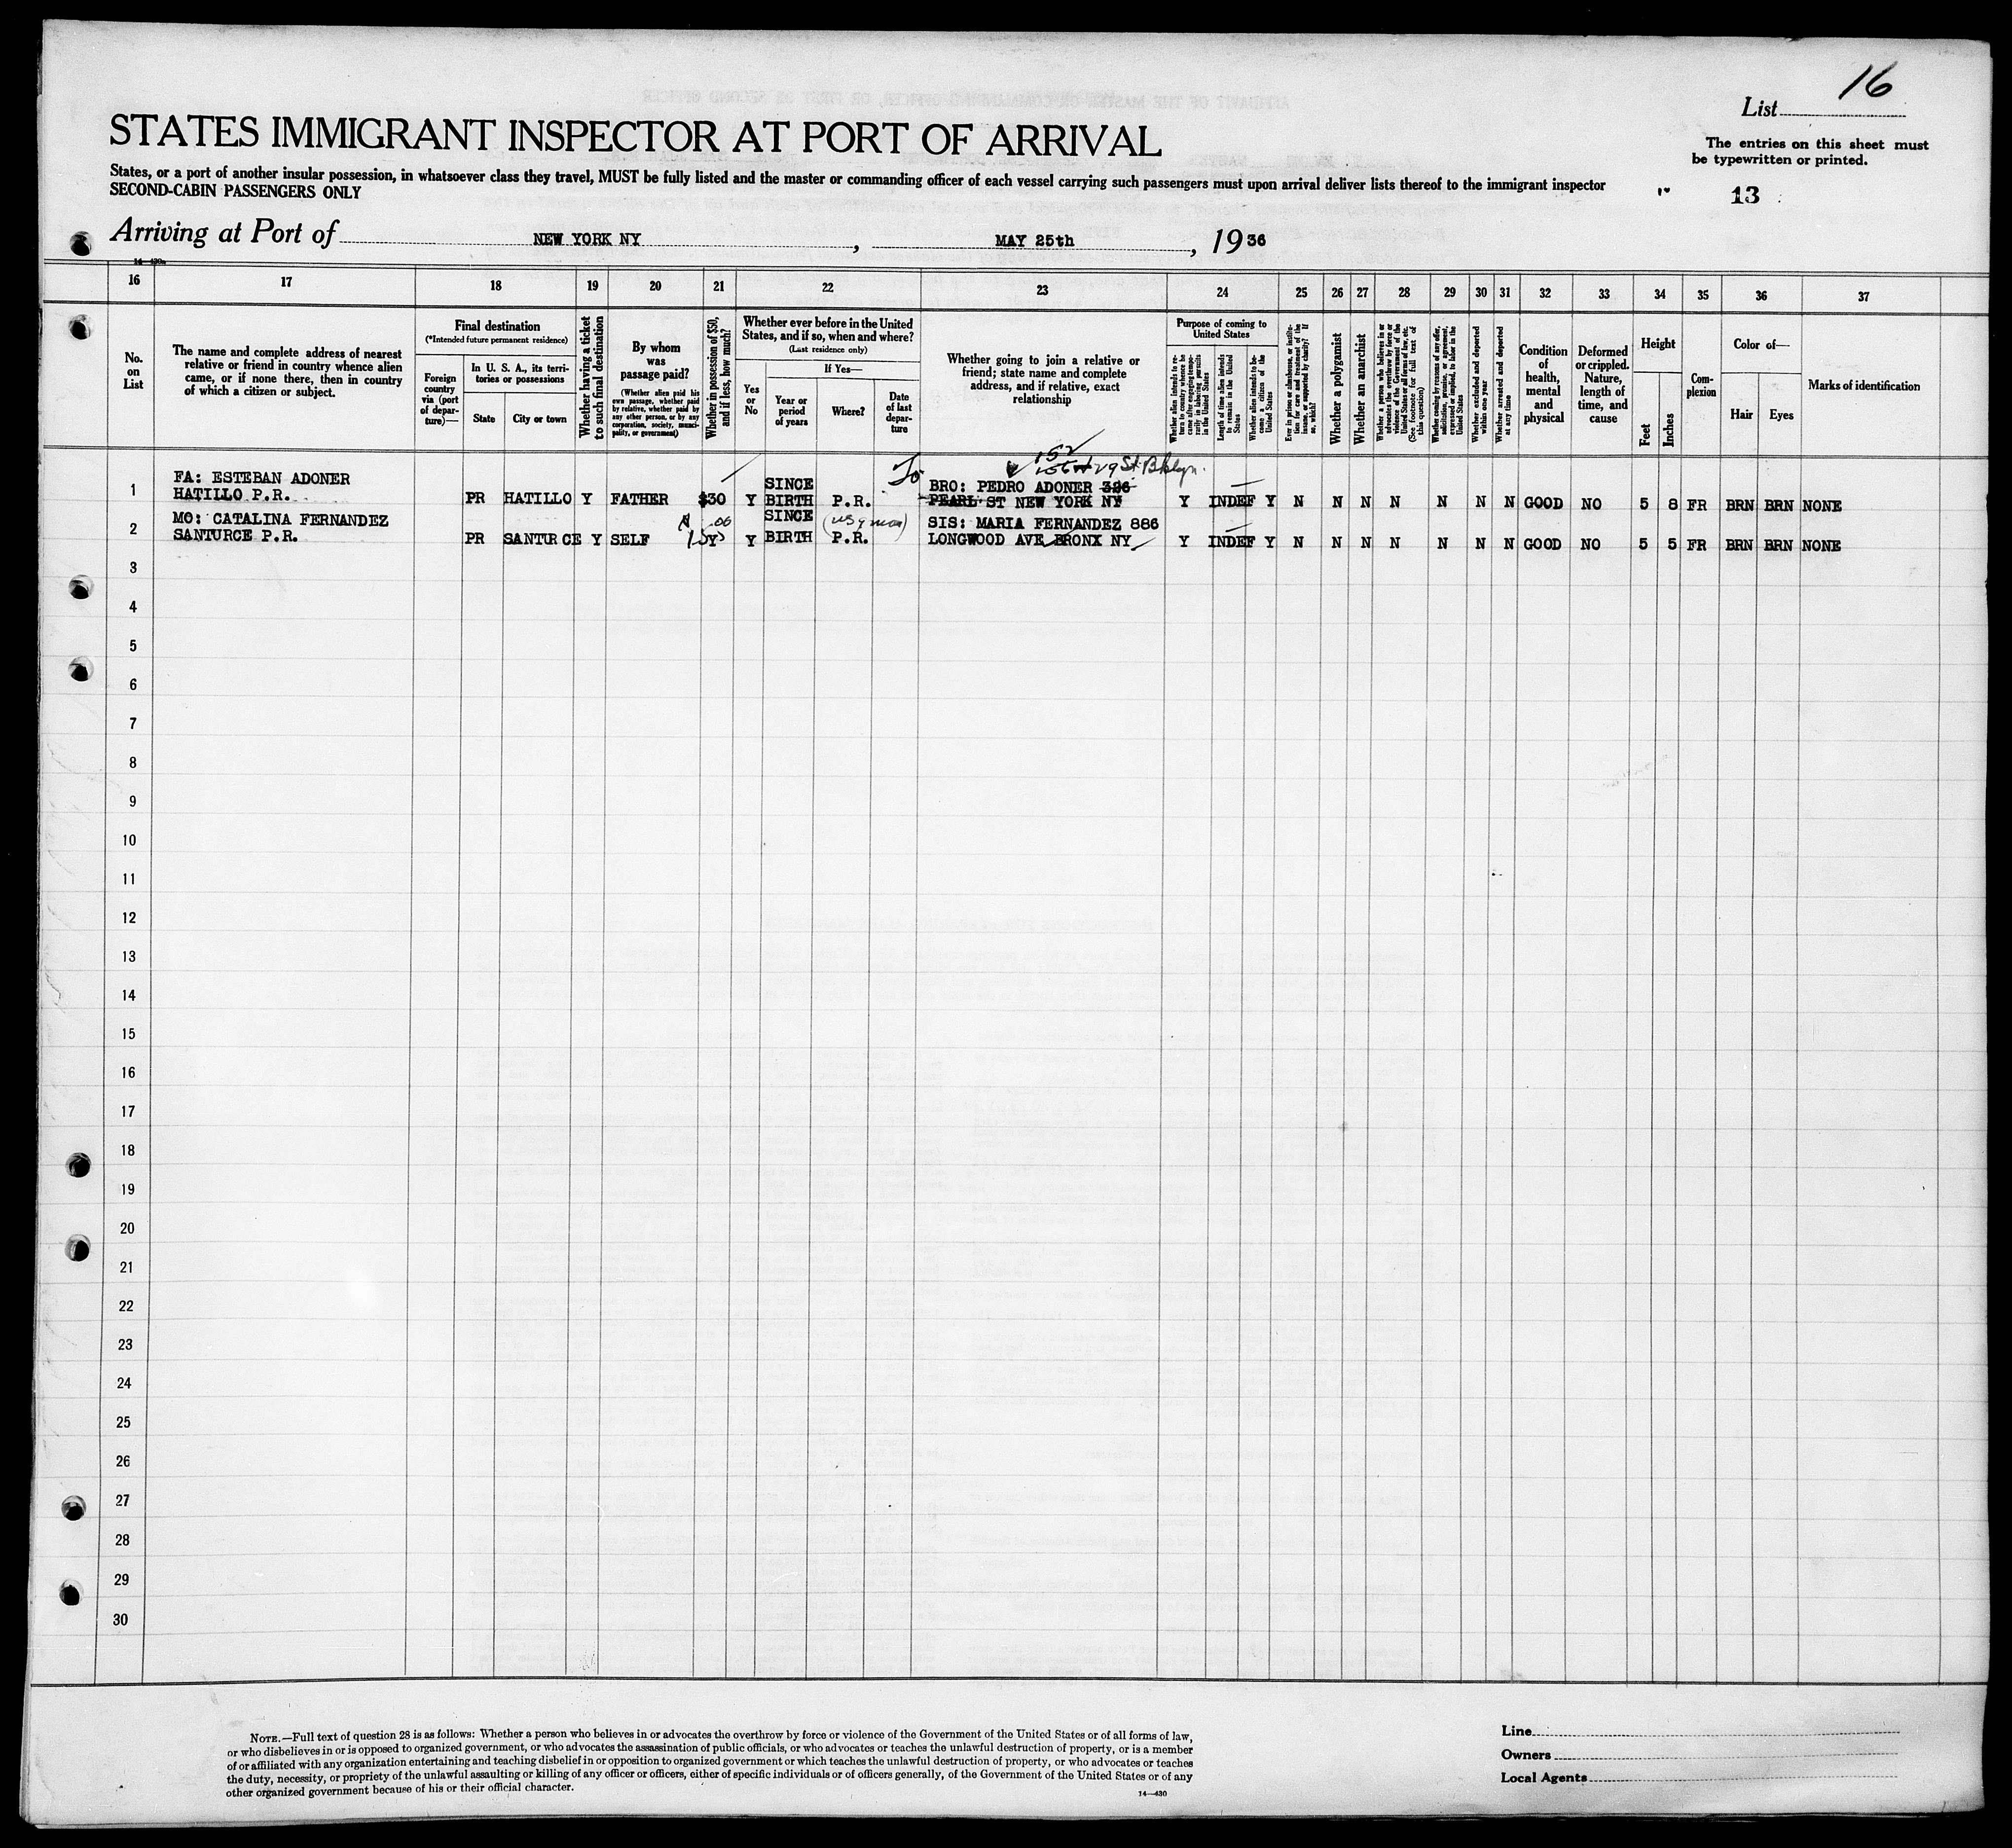 16
List
STATES IMMIGRANT INSPECTOR AT PORT OF ARRIVAL
The entries on this sheet must
be typewritten or printed.
States, or a port of another insular possession, in whatsoever class they travel, MUST be fully listed and the master or commanding officer of each vessel carrying such passengers must upon arrival deliver lists thereof to the immigrant inspector
SECOND-CABIN PASSENGERS ONLY
13
Arriving at Port of NEW YORK NY, MAY 25th, 1936
14—430
16 17 18 19 20 21 22 23 24 25 26 27 28 29 30 31 32 33 34 35 36 37
No.
on
List
The name and complete address of nearest
relative or friend in country whence alien
came, or if none there, then in country
of which a citizen or subject.
Final destination
(*Intended future permanent residence)
Foreign
country
via (port
of depar-
ture)—
In U. S. A., its terri-
tories or possessions
State
City or town
Whether having a ticket
to such final destination
By whom
was
passage paid?
(Whether alien paid his
own passage, whether paid
by relative, whether paid by
any other person, or by any
corporation, society, munici-
pality, or government)
Whether in possession of $50,
and if less, how much?
Whether ever before in the United
States, and if so, when and where?
(Last residence only)
Yes
or
No
If Yes—
Year or
period
of years
Where?
Date
of last
depar-
ture
Whether going to join a relative or
friend; state name and complete
address, and if relative, exact
relationship
Purpose of coming to
United States
Whether alien intends to re-
turn to country whence he
came after engaging tempo-
rarily in laboring pursuits
in the United States
Length of time alien intends
to remain in the United
States
Whether alien intends to be-
come a citizen of the
United States
Ever in prison or almshouse, or institu-
tion for care and treatment of the
insane, or supported by charity? If
so, which?
Whether a polygamist
Whether an anarchist
Whether a person who believes in or
advocates the overthrow by force or
violence of the Government of the
United States or all forms of law, etc.
(See footnote for full text of
this question)
Whether coming by reasons of any offer,
solicitation, promise, or agreement,
expressed or implied, to labor in the
United States
Whether excluded and deported
within one year
Whether arrested and deported
at any time
Condition
of
health,
mental
and
physical
Deformed
or crippled.
Nature,
length of
time, and
cause
Height
Feet
Inches
Com-
plexion
Color of—
Hair
Eyes
Marks of identification
152
29 St. Bklyn.
To
1 FA: ESTEBAN ADONER SINCE BRO: PEDRO ADONER 326
HATILLO P.R. PR HATILLO Y FATHER $30 Y BIRTH P.R. PEARL ST NEW YORK NY Y INDEF Y N N N N N N N GOOD NO 5 8 FR BRN BRN NONE
2 MO: CATALINA FERNANDEZ SINCE SIS: MARIA FERNANDEZ 886
SANTURCE P.R. PR SANTURCE Y SELF Y Y BIRTH P.R. LONGWOOD AVE BRONX NY Y INDEF Y N N N N N N N GOOD NO 5 5 FR BRN BRN NONE
3
4
5
6
7
8
9
10
11
12
13
14
15
16
17
18
19
20
21
22
23
24
25
26
27
28
29
30
NOTE.—Full text of question 28 is as follows: Whether a person who believes in or advocates the overthrow by force or violence of the Government of the United States or of all forms of law,
or who disbelieves in or is opposed to organized government, or who advocates the assassination of public officials, or who advocates or teaches the unlawful destruction of property, or is a member
of or affiliated with any organization entertaining and teaching disbelief in or opposition to organized government or which teaches the unlawful destruction of property, or who advocates or teaches
the duty, necessity, or propriety of the unlawful assaulting or killing of any officer or officers, either of specific individuals or of officers generally, of the Government of the United States or of any
other organized government because of his or their official character.
14—430
Line
Owners
Local Agents